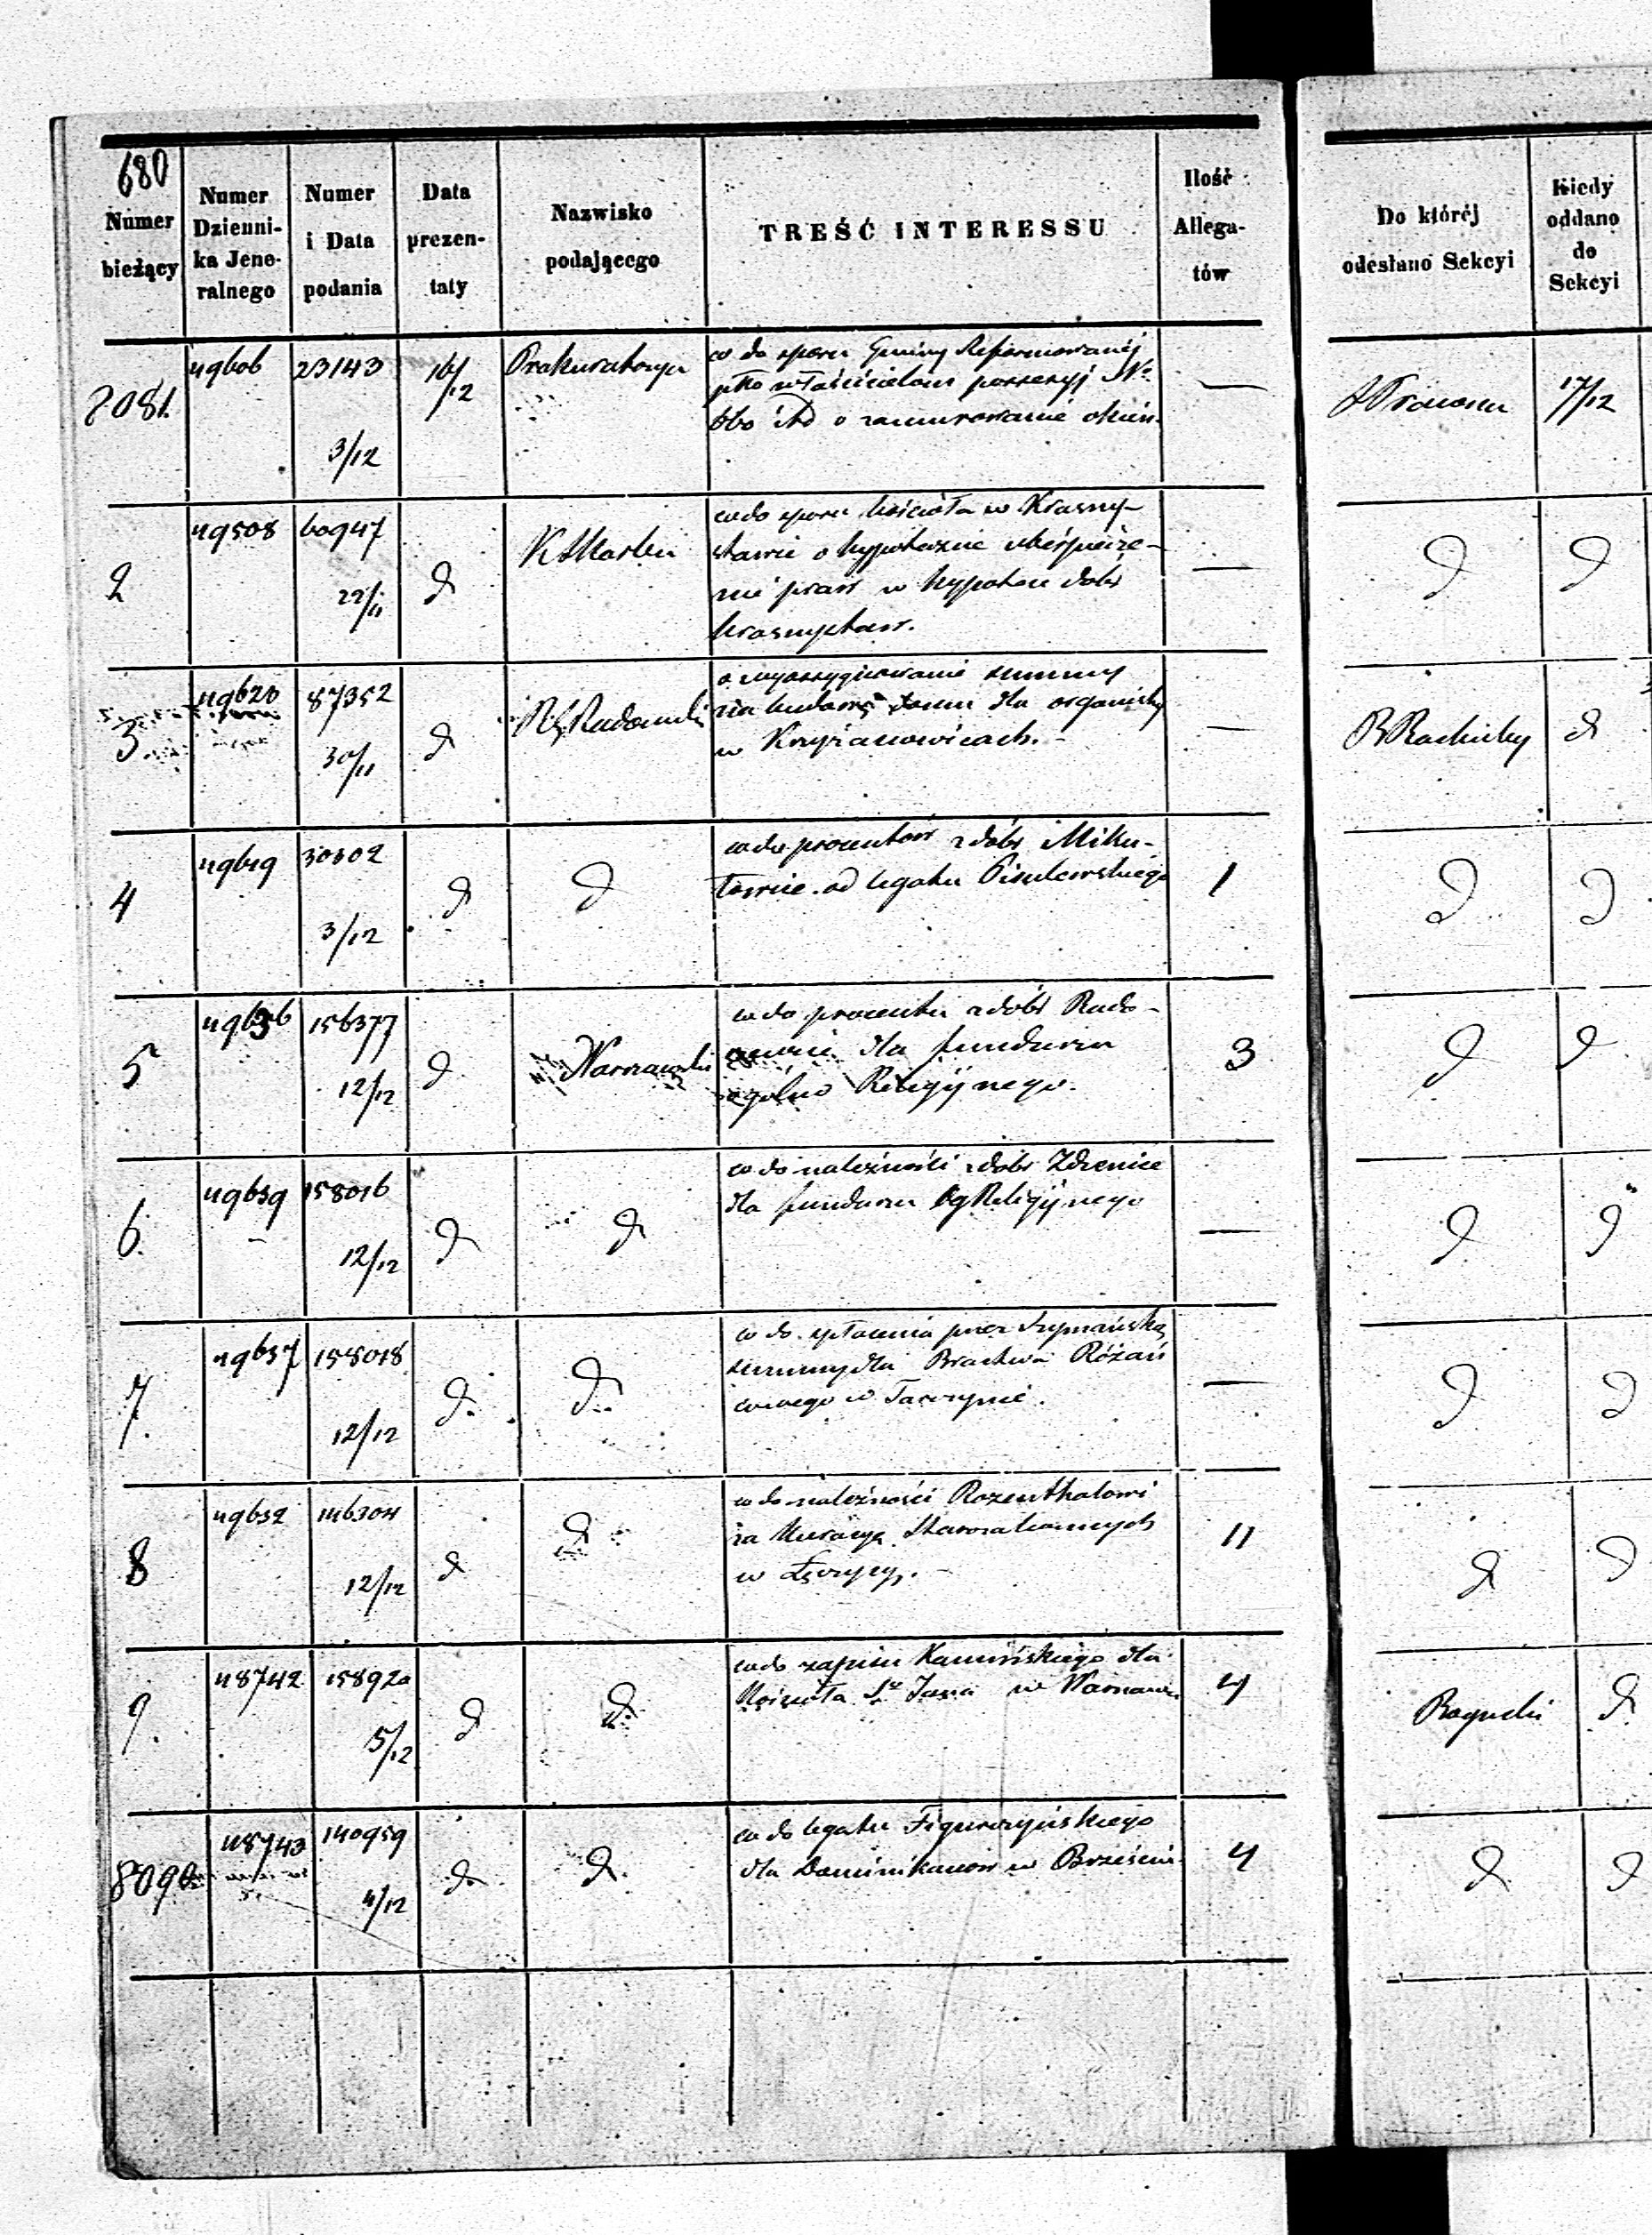 680
Numer bieżący | Numer Dzienni- ka Jene- ralnego | Numer i Data podania | Data prezen- taty | Nazwisko podającego | TREŚĆ INTERESSU | Ilość Allega- tów | Do któréj odesłano Sekcyi | Kiedy oddano do Sekcyi
8081. | 49606 | 23143 3/12 | 16/12 | Prokuratorya | co do sporu Gminy Reformowanéj
płko właścicielom possesyj No
o zamurowanie okien. | — | 17/12
2 | 49508 | 60947 22/11 | d | co do sporu kościoła w Krasny-
stawie o hypoteczne ubespiecze-
nie praw w hypotece dóbr
Krasnystaw. | — | d | d
3 | 49620 | 87352 30/11 | d | Rg Radomski | o wyassygnowanie summy
na budowę domu dla organisty
w Krzyżanowicach. | — | d
4 | 49619 | 30302 3/12 | d | d | co do procentów z dóbr Miku-
łowice od legatu | 1 | d | d
5 | 49636 | 156377 12/12 | d | Warszawski | co do procentu z dóbr Rado-
dla funduszu
ogólno Religijnego. | 3 | d | d
6. | 49639 | 158016 12/12 | d | d | co do należności z dóbr Zdzenice
dla funduszu Og Religijnego | — | d | d
7. | 49637 | 158018 12/12 | d. | d. | co do spłacenia przez Szymańską
summy dla Bractwa Różań
cowego w Tarczynie. | — | d | d
8 | 49632 | 146304 12/12 | d | d | co do należności Rozenthalowi
za kuracyę Starozakonnych
w Łęczycy. | 11 | d | d
9. | 48742 | 158920 5/12 | d | d. | co do zapisu Kamińskiego dla
Kościoła Sgo Jana w Warszawie | 4 | d
8090 | 48743 | 140959 4/12 | d. | d. | co do legatu
dla Dominikanów w Brześciu | 4 | d | d